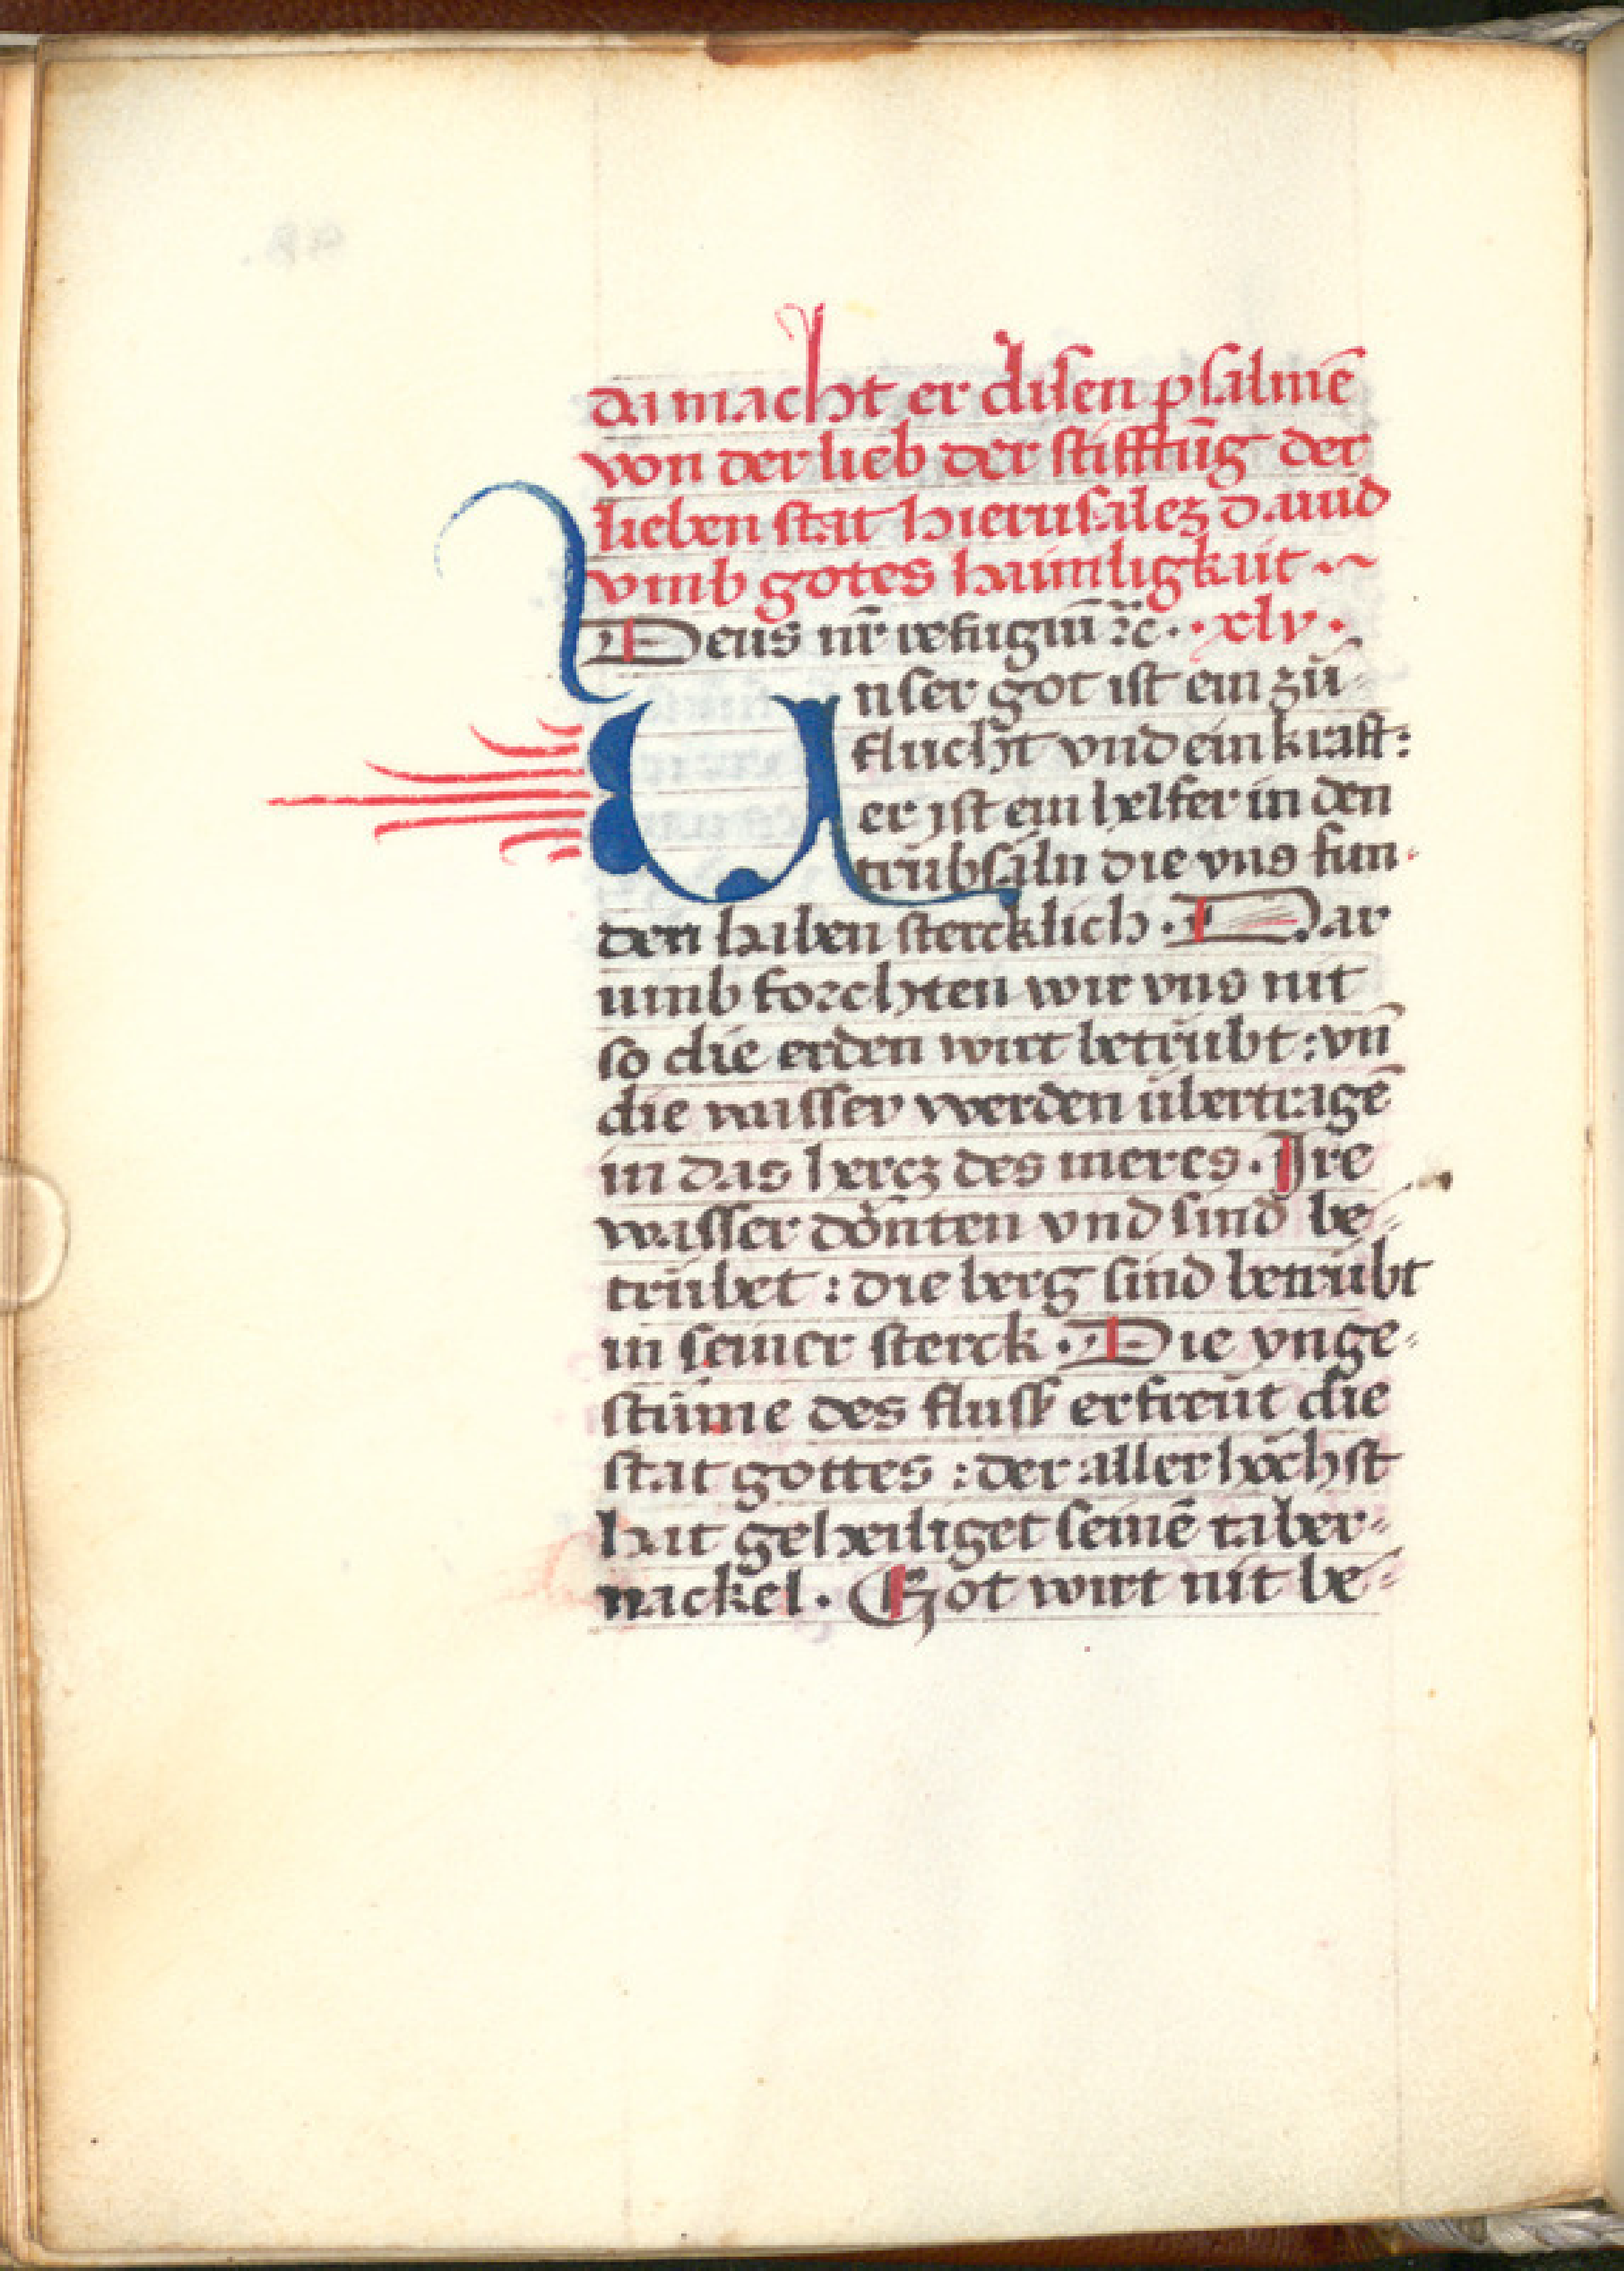 da macht er disen psalmē
von der lieb der stifftūg der
lieben stat hierusalez dauid
vmb gotes haimligkait ~~
Deus nr̄ refugiū ⁊c̄ · · xlv ·
Unser got ist ein zů-
flucht vnd ein kraft:
er ist ein helfer in den
trübsaln die vns fun-
den haben stercklich · Dar
umb forchten wir vns nit
so die erden wirt betrübt : vn̄
die wasser werden übertragē
in das hercz des meres · Ire
wasser dönten vnd sind be-
trübet : die berg sind betrübt
in seiner sterck · Die vnge-
stüme des fluss erfreüt die
stat gottes : der aller höchst
hat geheiliget seinē taber-
nackel · Got wirt nit be-